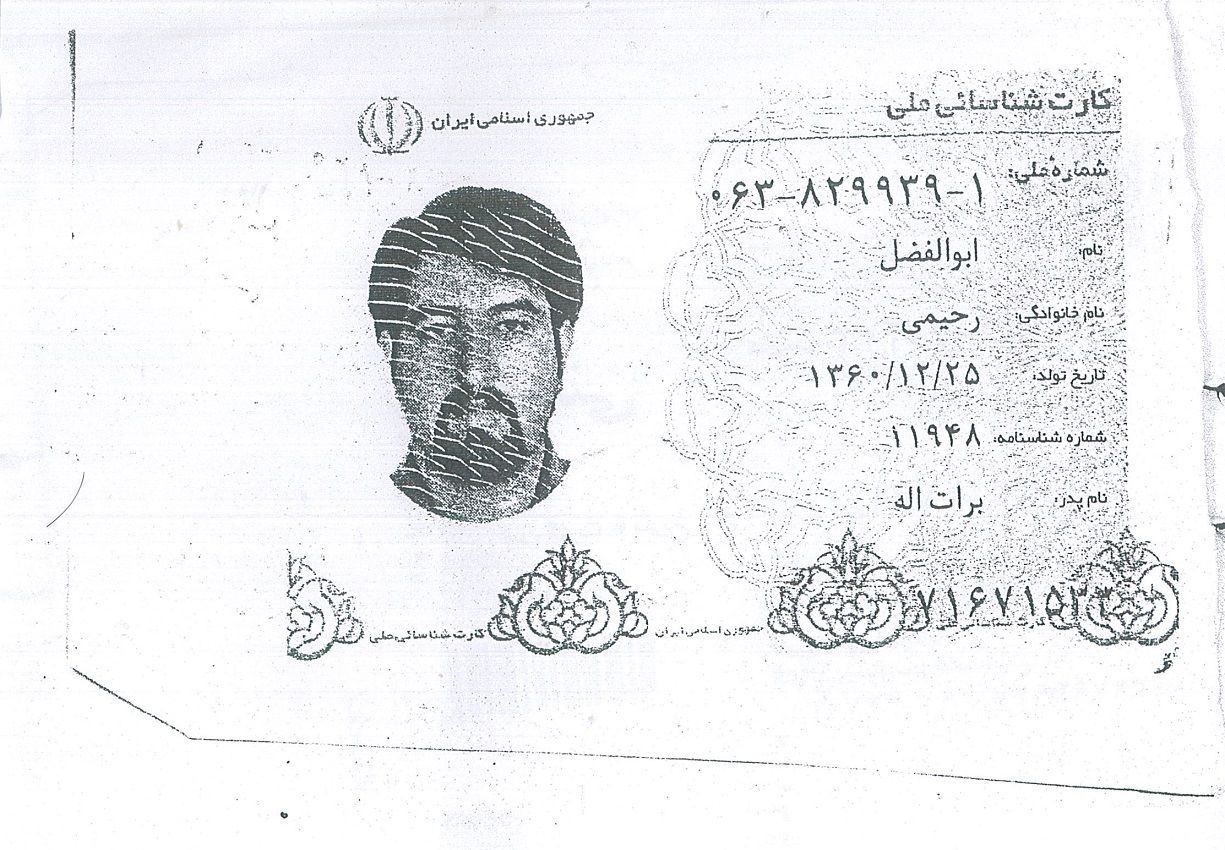 جمهوری اسلامی ایران
کارت شناسائی ملی
شماره ملی: ۰۶۳-۸۲۹۹۳۹-۱
نام: ابوالفضل
نام خانوادگی: رحیمی
تاریخ تولد: ۱۳۶۰/۱۲/۲۵
شماره شناسنامه: ۱۱۹۴۸
نام پدر: برات اله
۷۱۶۷۱۵۳۳
جمهوری اسلامی ایران
کارت شناسائی ملی